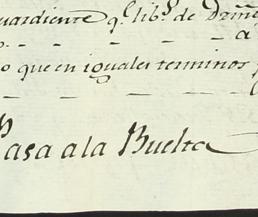 uardiente q.e lib.s de Drñe
a
o que en iguales terminos
Pasa a la Buelta